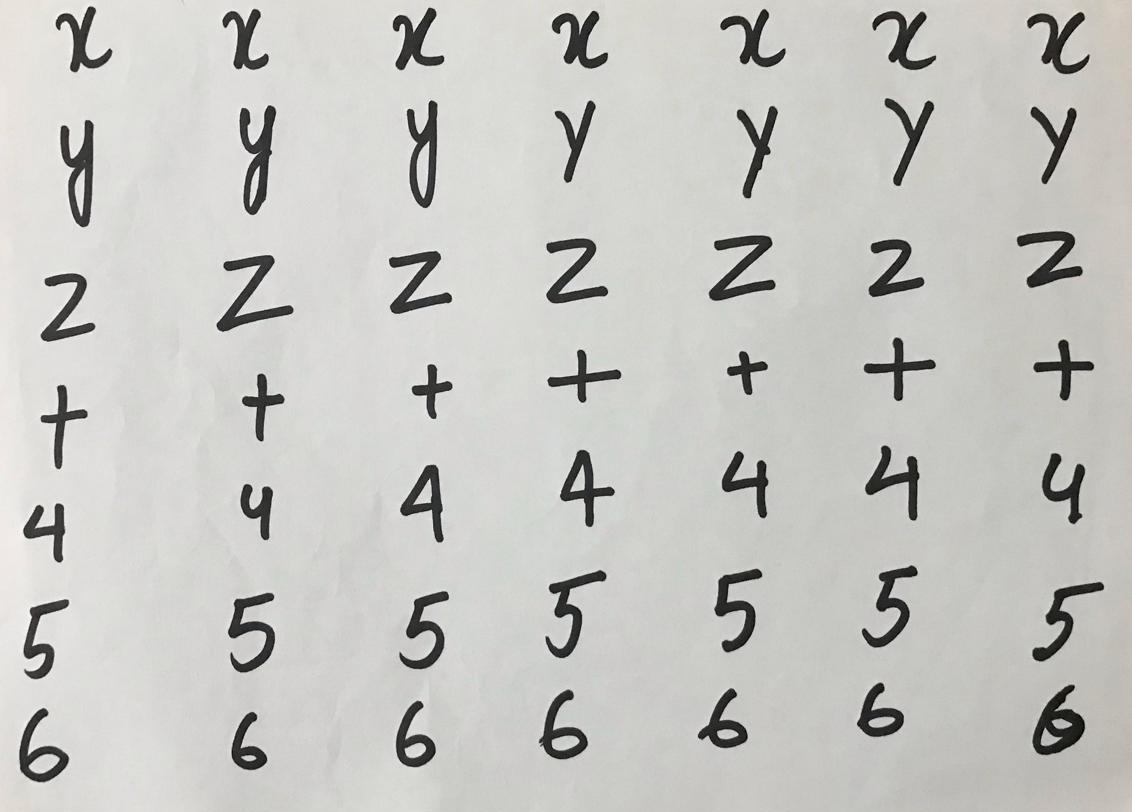 x x x x x x x
y y y y y y y
z z z z z z z
+ + + + + + +
4 4 4 4 4 4 4
5 5 5 5 5 5 5
6 6 6 6 6 6 6